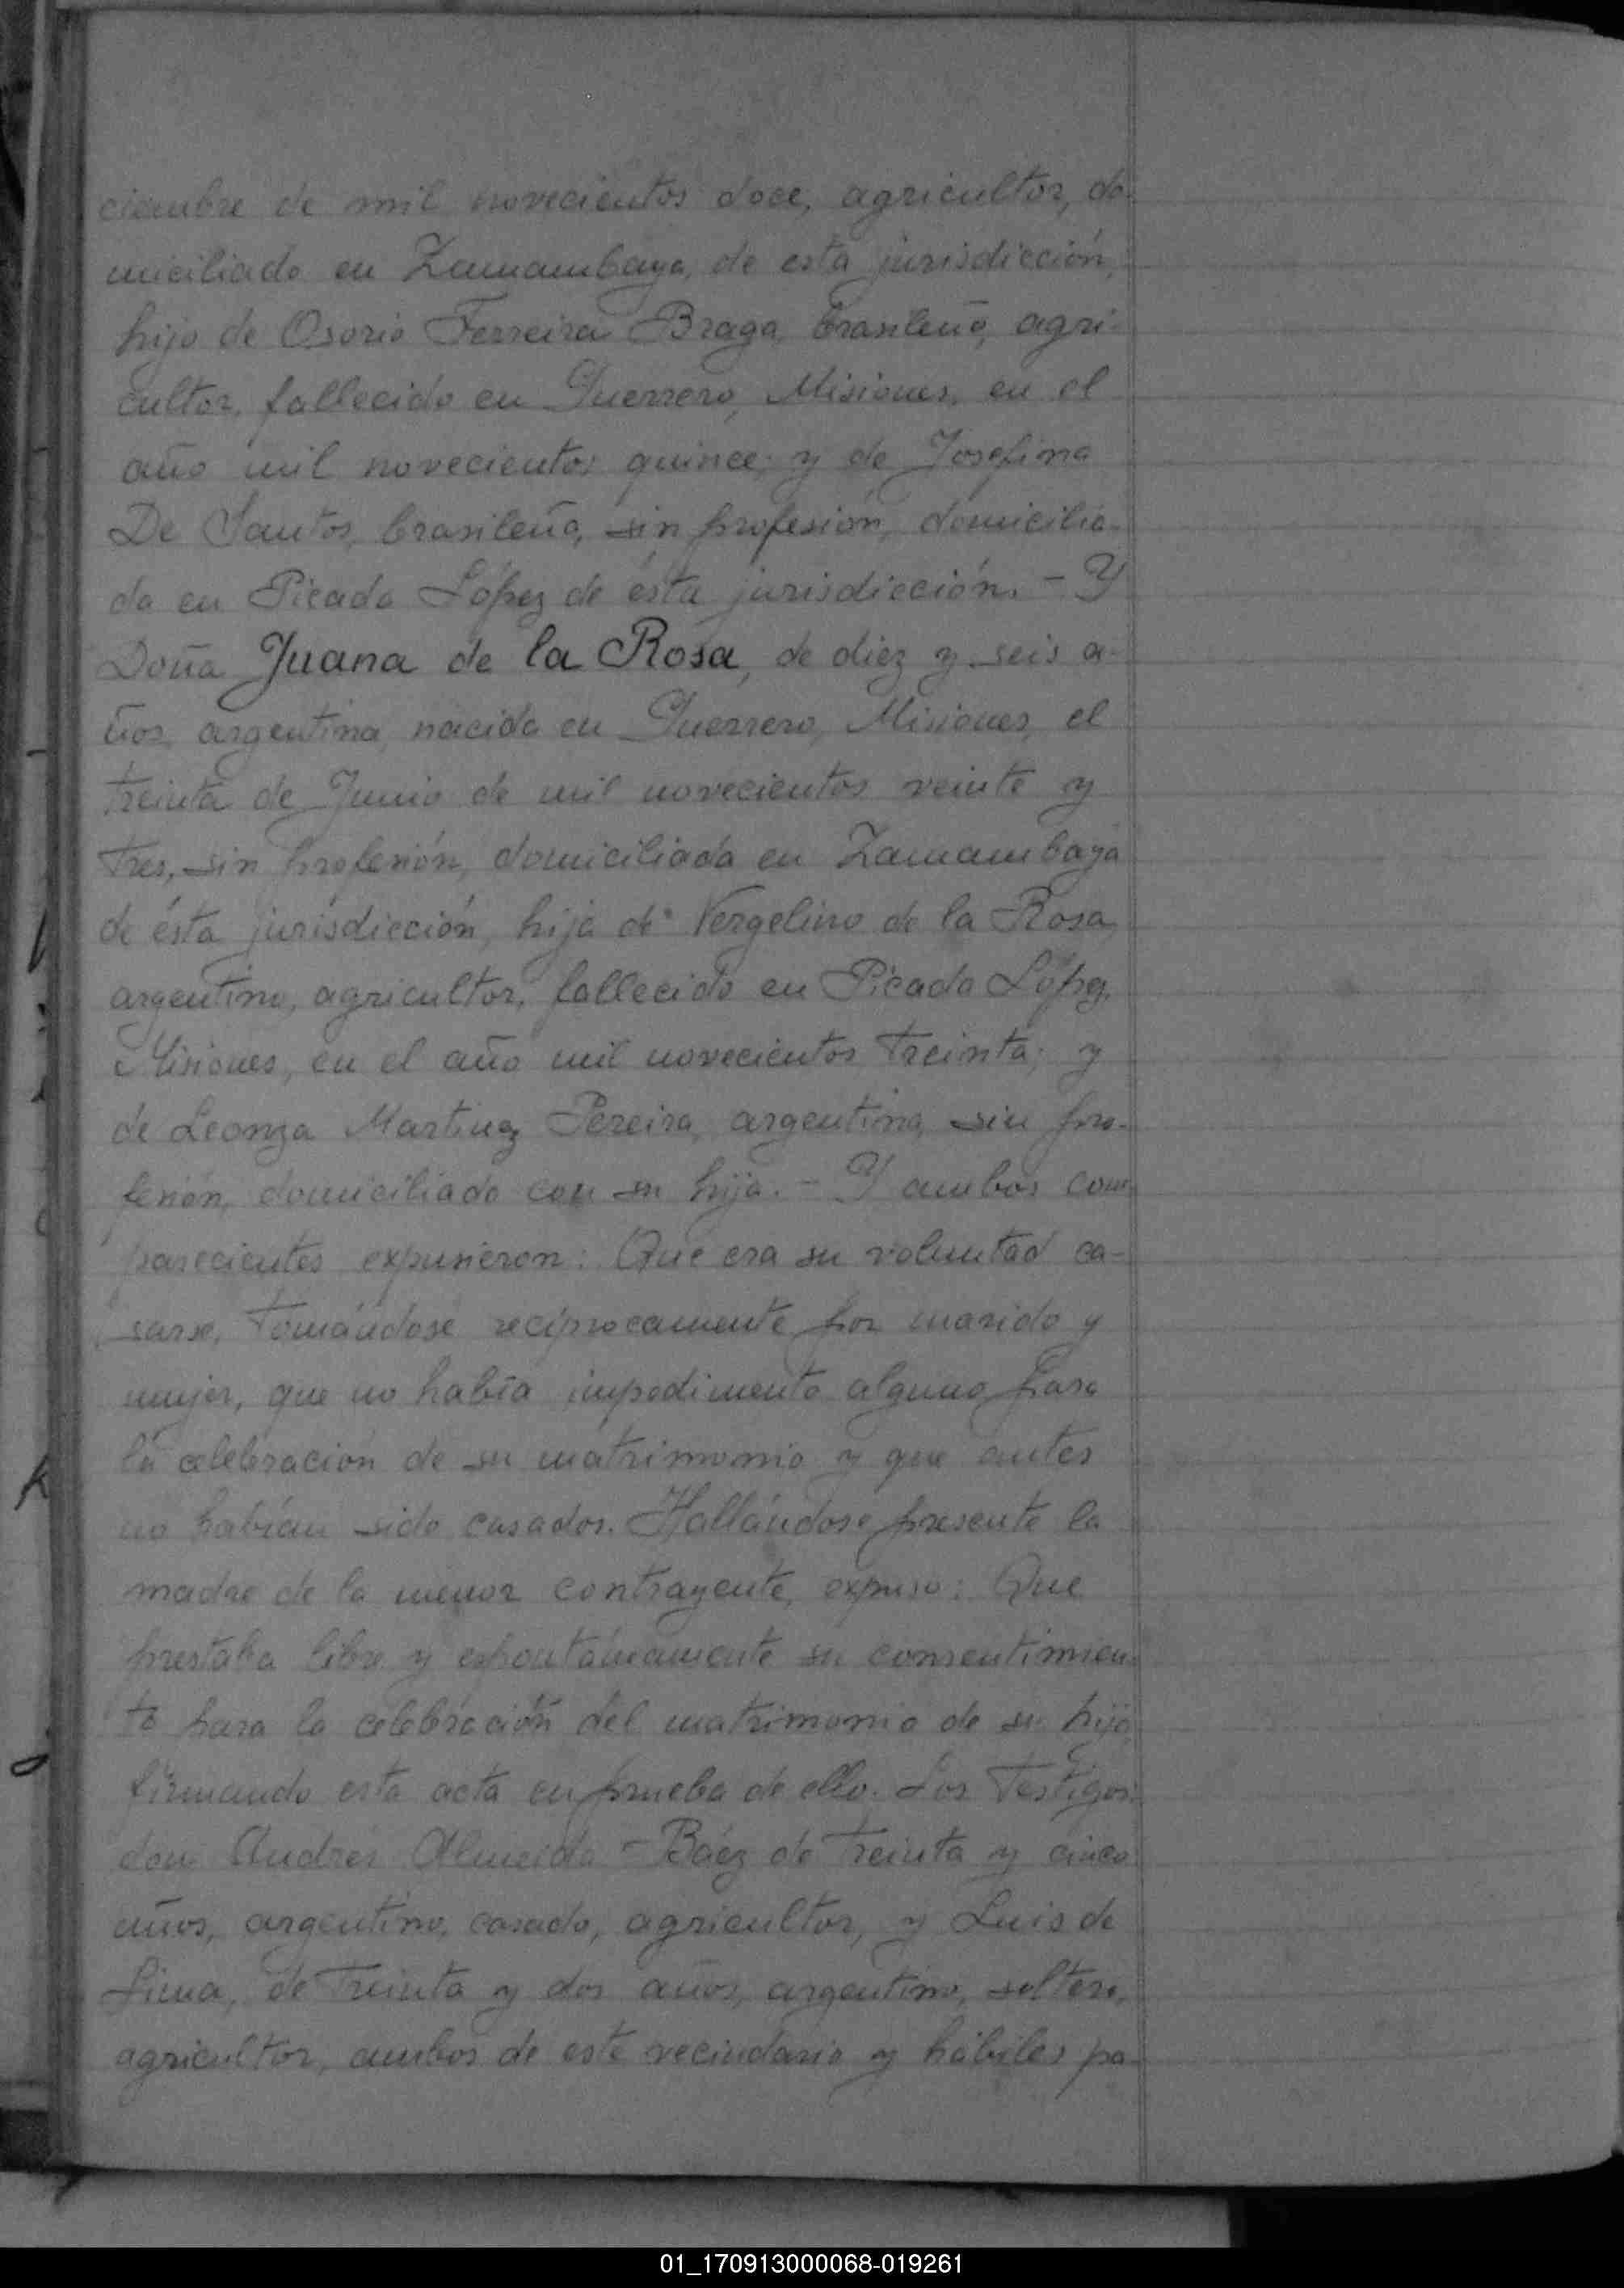 ciembre de mil novecientos doce, agricultor, do-
miciliado en Zamambaya, de esta jurisdicción,
hijo de Osorio Ferreira Braga, brasileño, agri-
cultor, fallecido en Guerrero, Misiones, en el
año mil novecientos quince; y de Josefina
De Santos, brasileña, sin profesión, domicilia-
da en Picada López de ésta jurisdicción. - Y
Doña Juana de la Rosa, de diez y seis a-
ños, argentina, nacida en Guerrero, Misiones, el
treinta de Junio de mil novecientos veinte y
tres, sin profesión, domiciliada en Zamambaya
de ésta jurisdicción, hija de Vergelino de la Rosa,
argentino, agricultor, fallecido en Picada López,
Misiones, en el año mil novecientos treinta; y
de Leonza Martinez Pereira, argentina, sin pro-
fesión, domiciliada con su hija. - Y ambos com-
parecientes expusieron: Que era su voluntad ca-
sarse, tomándose recíprocamente por marido y
mujer, que no había impedimento alguno para
la celebración de su matrimonio y que antes
no habían sido casados. Hallándose presente la
madre de la menor contrayente, expuso: Que
prestaba libre y espontáneamente su consentimien-
to para la celebración del matrimonio de su hija,
firmando esta acta en prueba de ello. Los Testigos:
don Andrés Almeida - Báez de treinta y cinco
años, argentino, casado, agricultor, y Luis de
Lima, de treinta y dos años, argentino, soltero,
agricultor, ambos de este vecindario y hábiles pa-
01_170913000068-019261